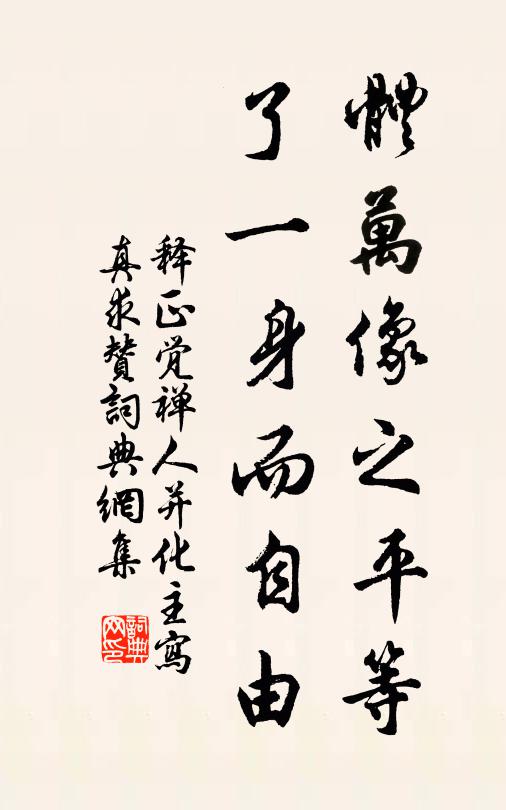 體萬像之平等
了一身而自由
释正觉禅人并化主寫
真求贊詞典網集
詞典网印